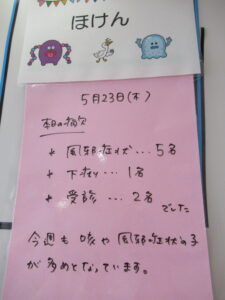 ほけん
5月23日(木)
本日の病欠
* 風邪症状...5名
* 下痢...1名
* 受診...2名
でした
今週も咳や風邪症状の子
が多めとなっています。